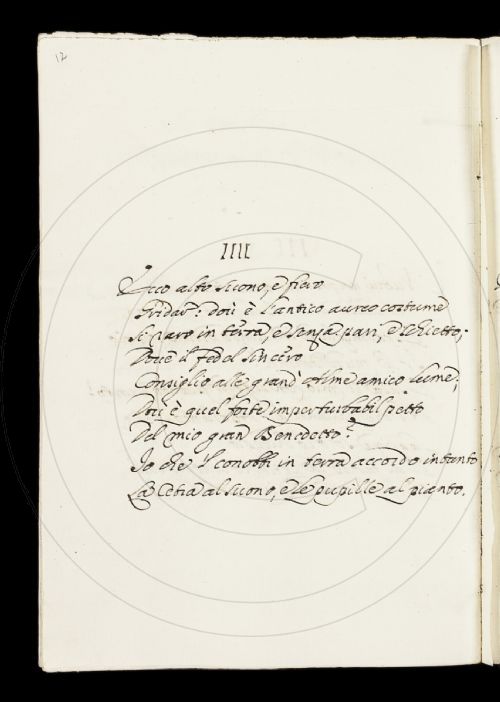 12
IIII
Ecco alto suono, e fiero
Gridar: dou' è l'antico aureo costume
Si raro in terra, e senza pari, e schietto;
Dou'è il fedel sincero
Consiglio alle grand' alme amico lume;
Dou' è quel forte imperturbabil petto
Del mio gran Benedetto?
Io che 'l conobbi in terra accordo intanto
La Cetra al suono, e le pupille al pianto.